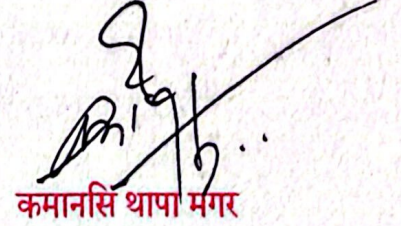 कमानसिं थापा मगर